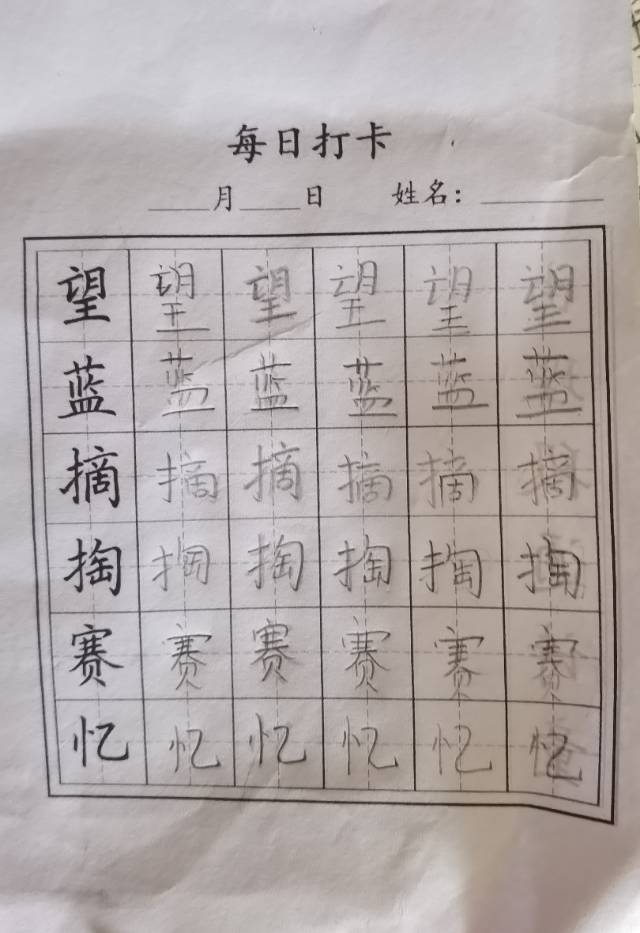 每日打卡
____月____日 姓名：________
望 望 望 望 望 望
蓝 蓝 蓝 蓝 蓝 蓝
摘 摘 摘 摘 摘 摘
掏 掏 掏 掏 掏 掏
赛 赛 赛 赛 赛 赛
忆 忆 忆 忆 忆 忆